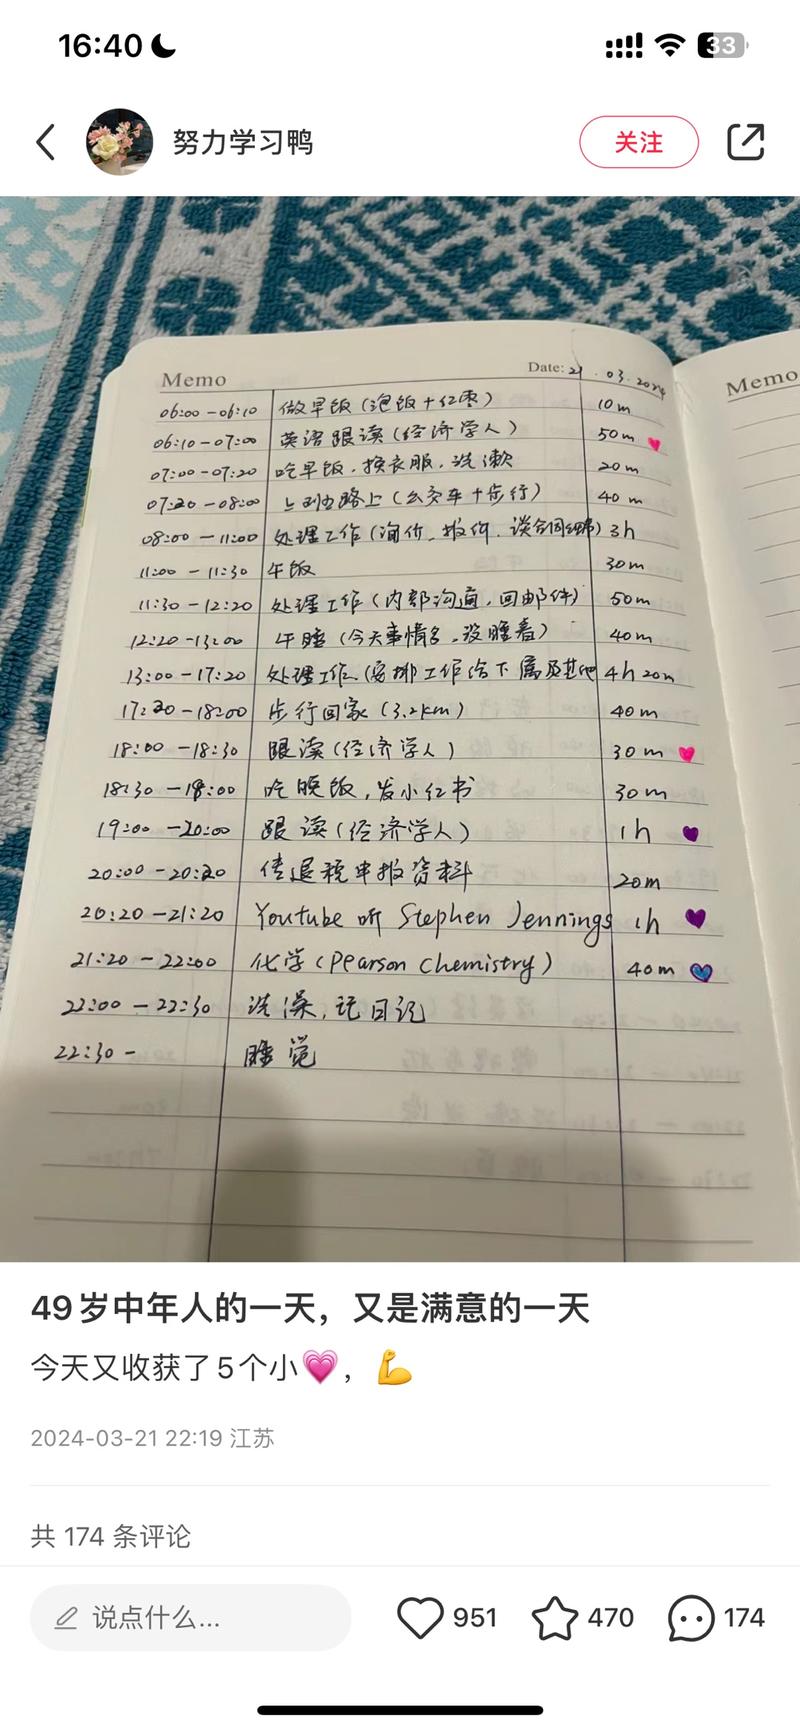 16:40
33
努力学习鸭
关注
Memo
Date: 21.03.2024
Memo
06:00-06:10 做早饭(泡饭+红枣) 10m
06:10-07:00 英语跟读(经济学人) 50m
07:00-07:20 吃早饭,换衣服,洗漱 20m
07:20-08:00 上班路上(公交车+步行) 40m
08:00-11:00 处理工作(询价,报价,谈合同细节) 3h
11:00-11:30 午饭 30m
11:30-12:20 处理工作(内部沟通,回邮件) 50m
12:20-13:00 午睡(今天事情多,没睡着) 40m
13:00-17:20 处理工作(安排工作给下属及其他 4h 20m
17:20-18:00 步行回家(3.2km) 40m
18:00-18:30 跟读(经济学人) 30m
18:30-19:00 吃晚饭,发小红书 30m
19:00-20:00 跟读(经济学人) 1h
20:00-20:20 传退税申报资料 20m
20:20-21:20 Youtube 听 Stephen Jennings 1h
21:20-22:00 化学(Pearson Chemistry) 40m
22:00-22:30 洗澡,记日记
22:30- 睡觉
49岁中年人的一天，又是满意的一天
今天又收获了5个小💗，💪
2024-03-21 22:19 江苏
共 174 条评论
说点什么...
951
470
174